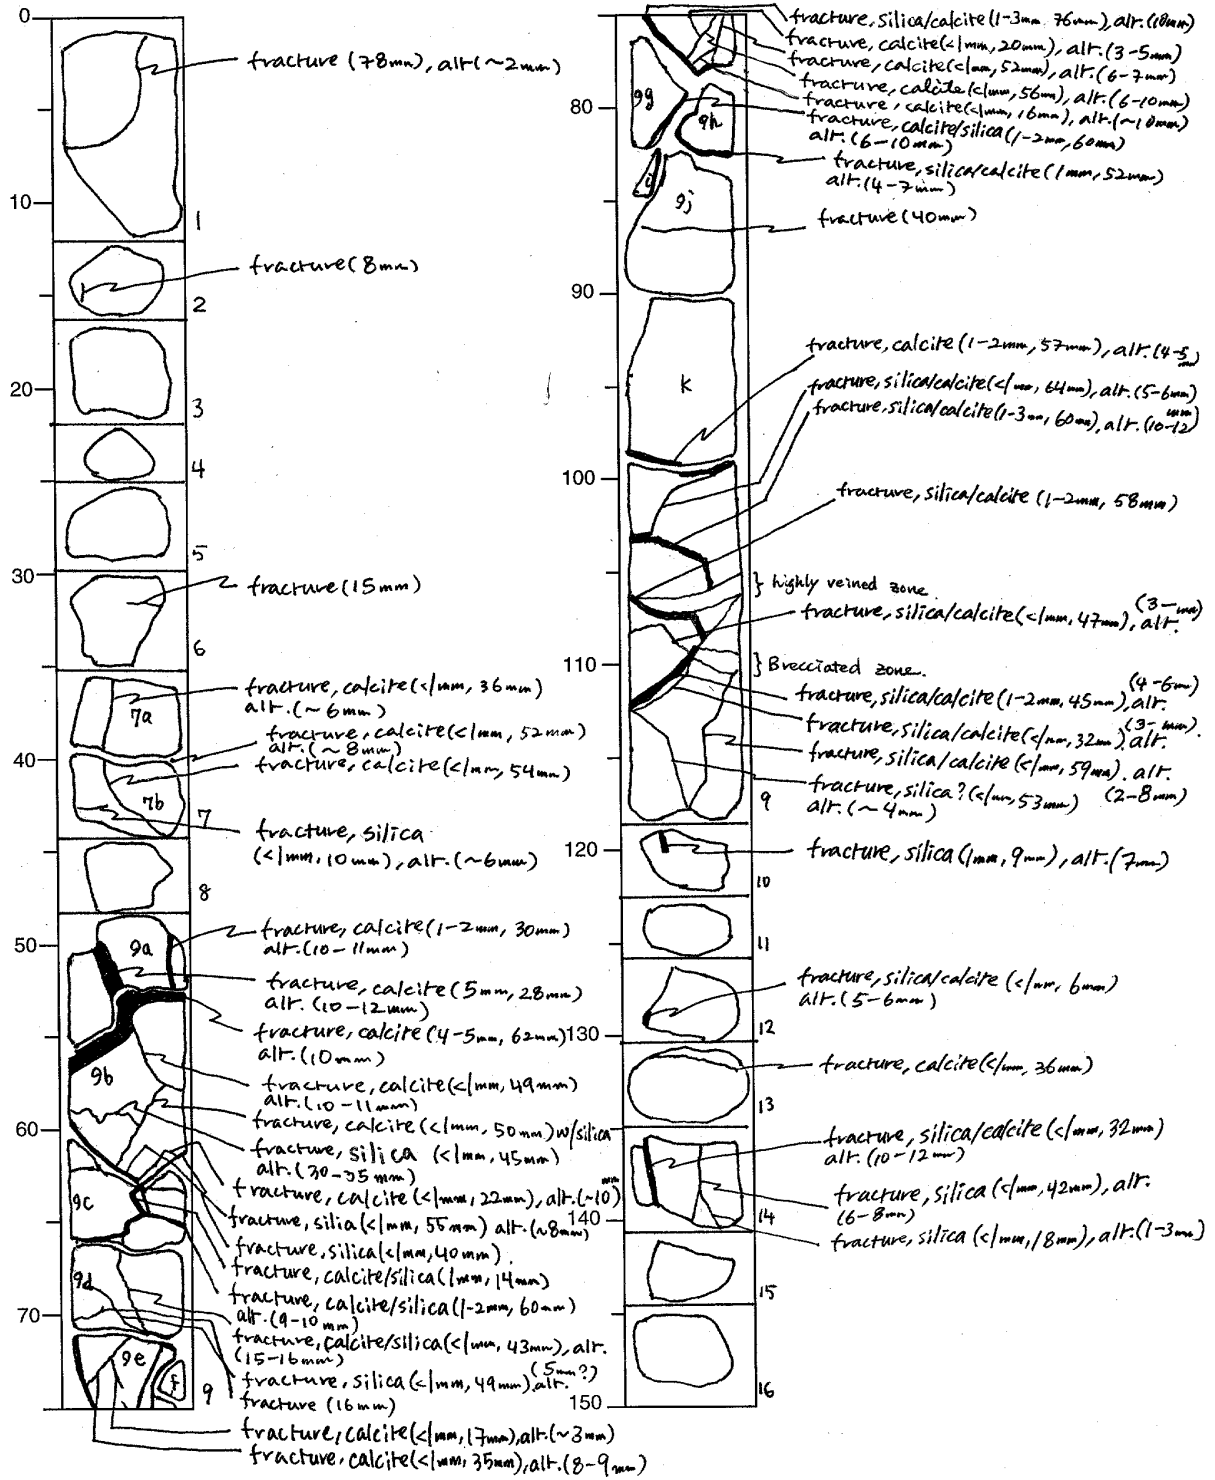 0
fracture (78mm), alt (~2mm)
10
1
fracture (8mm)
2
20
3
4
5
30
fracture (15mm)
6
fracture, calcite (<1mm, 36mm)
alt. (~6mm)
7a
fracture, calcite (<1mm, 52mm)
alt. (~8mm)
40
fracture, calcite (<1mm, 54mm)
7b
7
fracture, silica
(<1mm, 10mm), alt. (~6mm)
8
50
9a
fracture, calcite (1-2mm, 30mm)
alt. (10-11mm)
fracture, calcite (5mm, 28mm)
alt. (10-12mm)
fracture, calcite (4-5mm, 62mm)
alt. (10mm)
9b
fracture, calcite (<1mm, 49mm)
alt. (10-11mm)
fracture, calcite (<1mm, 50mm) w/silica
60
fracture, silica (<1mm, 45mm)
alt. (30-35mm)
9c
fracture, calcite (<1mm, 22mm), alt. (~10mm)
fracture, silia (<1mm, 55mm) alt. (~8mm)
fracture, silica (<1mm, 40mm)
fracture, calcite/silica (1mm, 14mm)
9d
fracture, calcite/silica (1-2mm, 60mm)
alt. (9-10mm)
70
fracture, calcite/silica (<1mm, 43mm), alt.
(15-16mm)
9e
f
9
fracture, silica (<1mm, 49mm), alt. (5mm?)
fracture (16mm)
fracture, calcite (<1mm, 17mm), alt. (~3mm)
fracture, calcite (<1mm, 35mm), alt. (8-9mm)
fracture, silica/calcite (1-3mm, 76mm), alt. (18mm)
fracture, calcite (<1mm, 20mm), alt. (3-5mm)
fracture, calcite (<1mm, 52mm), alt. (6-7mm)
fracture, calcite (<1mm, 56mm), alt. (6-10mm)
fracture, calcite (<1mm, 16mm), alt. (~10mm)
fracture, calcite/silica (1-2mm, 60mm)
alt. (6-10mm)
9g
80
9h
fracture, silica/calcite (1mm, 52mm)
alt. (4-7mm)
i
9j
fracture (40mm)
90
fracture, calcite (1-2mm, 57mm), alt. (4-5mm)
k
fracture, silica/calcite (<1mm, 64mm), alt. (5-6mm)
fracture, silica/calcite (1-3mm, 60mm), alt. (10-12mm)
100
fracture, silica/calcite (1-2mm, 58mm)
} highly veined zone
fracture, silica/calcite (<1mm, 47mm), alt. (3-mm)
110
} Brecciated zone.
fracture, silica/calcite (1-2mm, 45mm), alt. (4-6mm)
fracture, silica/calcite (<1mm, 32mm), alt. (3-mm).
fracture, silica/calcite (<1mm, 59mm), alt.
(2-8mm)
fracture, silica? (<1mm, 53mm)
alt. (~4mm)
9
120
fracture, silica (1mm, 9mm), alt. (7mm)
10
11
fracture, silica/calcite (<1mm, 6mm)
alt. (5-6mm)
12
130
fracture, calcite (<1mm, 36mm)
13
fracture, silica/calcite (<1mm, 32mm)
alt. (10-12mm)
fracture, silica (<1mm, 42mm), alt.
(6-8mm)
14
140
fracture, silica (<1mm, 18mm), alt. (1-3mm)
15
16
150